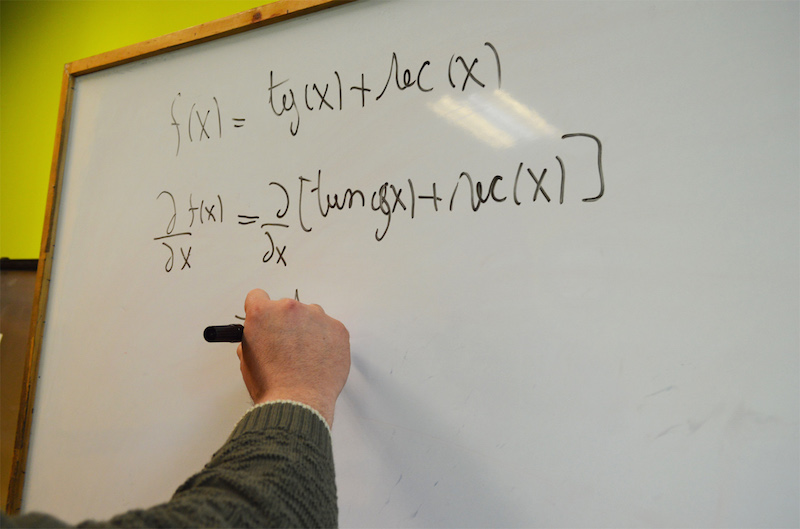 f(x) = tg(x) + sec(x)
∂/∂x f(x) = ∂/∂x [tan(x) + sec(x)]